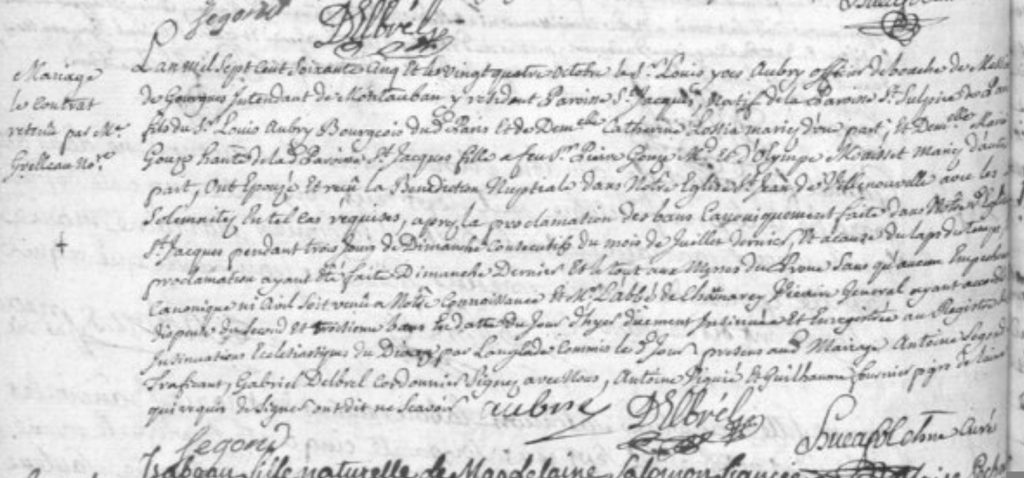 Segond Delbrél
Mariage
le Contrat
retenu par Me
Grelleau Nore
L'an mil sept cent soixante cinq et le vingt quatre octobre le Sr. Louis yves Aubry officier de bouche de
de Gourgues Intendant de Montauban y residant Paroisse St. Jacques, Natif de la Paroisse St. Sulpice de
fils du Sr. Louis Aubry Bourgeois dud. Paris et de Demlle Catherine mariés d'une part; et Demlle
Gouze hante de lad. Paroisse St. Jacques fille a feu Sr. Pierre Gouze Md. et d'Olympe Maisset mariés d'autre
part, ont Epousé et reçu la Benediction Nuptiale dans Notre Eglise St. Jean de Villenouvelle avec les
Solemnités en tel cas requises, après la proclamation des bans Canoniquement faite dans Notred. Eglise
St. Jacques pendant trois jours de Dimanche consecutifs du mois de Juillet dernier, et a cause du laps du temps,
proclamation ayant été faite Dimanche Dernier et le tout aux Messes du Prone sans qu'aucun Empechem
Canonique ni Civil soit venu a Notre Connaissance et Mr. L'abbé de Vicaire General ayant accordé
dispense du second et troisieme bans en datte du jour d'hyer duement Insinuée et Enregistrée au Registre des
Insinuations Ecclesiastiques du Dioceze par Langlade Commis le d. Jour, presens aud. Mariage Antoine Segond
Trafiquant, Gabriel Delbrel Cordonnier signés avec Nous, Antoine Piquié et Guilhaume fournier de laine
qui requis de signer ont dit ne scavoir
aubry Delbrél
Segond curé
Isabeau fille naturelle de Magdelaine Salomon